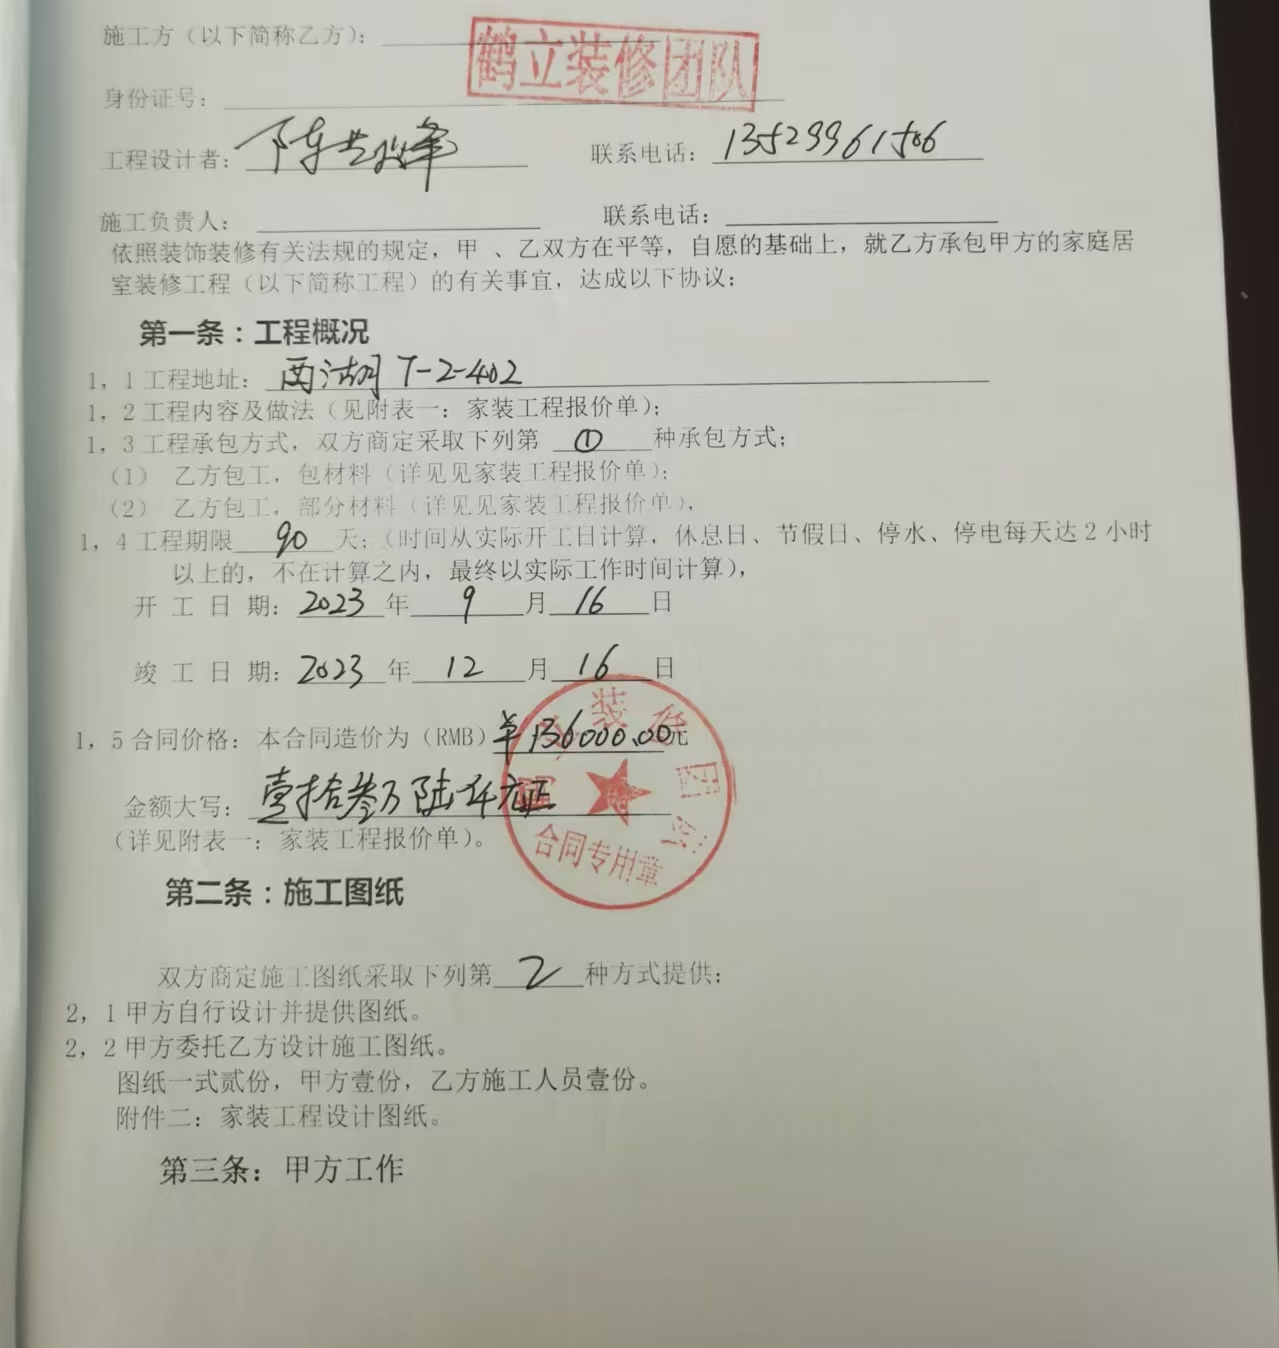 施工方（以下简称乙方）： 鹤立装修团队
身份证号：
工程设计者：陈 峰 联系电话：13529961506
施工负责人： 联系电话：
依照装饰装修有关法规的规定，甲 、乙双方在平等，自愿的基础上，就乙方承包甲方的家庭居
室装修工程（以下简称工程）的有关事宜，达成以下协议：
第一条：工程概况
1，1工程地址： 西湖月 T-2-402
1，2工程内容及做法（见附表一：家装工程报价单）；
1，3工程承包方式，双方商定采取下列第 ① 种承包方式；
（1） 乙方包工，包材料（详见见家装工程报价单）；
（2） 乙方包工，部分材料（详见见家装工程报价单），
1，4工程期限 90 天；（时间从实际开工日计算，休息日、节假日、停水、停电每天达2小时
以上的，不在计算之内，最终以实际工作时间计算），
开 工 日 期：2023 年 9 月 16 日
竣 工 日 期：2023 年 12 月 16 日
1，5合同价格：本合同造价为（RMB）￥136000.00元
金额大写：壹拾叁万陆仟元正
（详见附表一：家装工程报价单）。
装修团队
合同专用章
第二条：施工图纸
双方商定施工图纸采取下列第 2 种方式提供：
2，1甲方自行设计并提供图纸。
2，2甲方委托乙方设计施工图纸。
图纸一式贰份，甲方壹份，乙方施工人员壹份。
附件二：家装工程设计图纸。
第三条：甲方工作